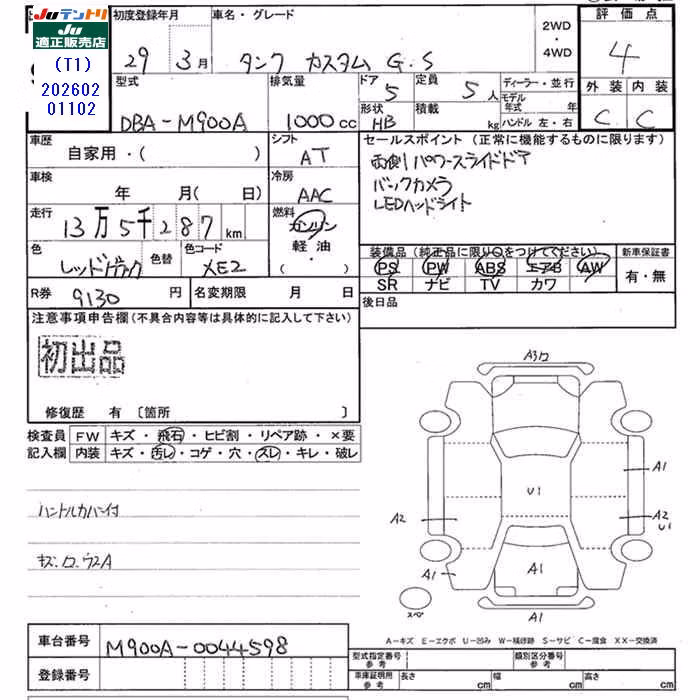 Juテントリ
Ju
適正販売店
(T1)
202602
01102
初度登録年月
29 3月
車名・グレード
タンク カスタム G.S
2WD
・
4WD
評価点
4
外装 内装
C C
型式
DBA-M900A
排気量
1000cc
ドア
5
定員
5人
形状
HB
積載
kg
ディーラー・並行
モデル年式 年
ハンドル 左・右
車歴
自家用・( )
シフト
AT
セールスポイント(正常に機能するものに限ります)
両側パワースライドドア
バックカメラ
LEDヘッドライト
車検
年 月( 日)
冷房
AAC
走行
13万5千287km
燃料
ガソリン
軽油・
( )
色
色替
色コード
XE2
装備品(純正品に限り○をつけてください)
PS PW ABS エアB AW
SR ナビ TV カワ
新車保証書
有・無
R券
9130円
名変期限 月 日
後日品
注意事項申告欄(不具合内容等は具体的に記入して下さい)
初出品
修復歴 有〔箇所 〕
検査員
記入欄
FW キズ・飛石・ヒビ割・リペア跡・×要
内装 キズ・汚レ・コゲ・穴・スレ・キレ・破レ
ハンドルカバー付
A1
U1
A2
A2
U1
A1
A1
A1
スペア
A-キズ E-エクボ U-凹み W-補修跡 S-サビ C-腐食 XX-交換済
車台番号
M900A-0044598
登録番号
型式指定番号
参考
類別区分番号
参考
車庫証明用
参考
長さ cm
幅 cm
高さ cm